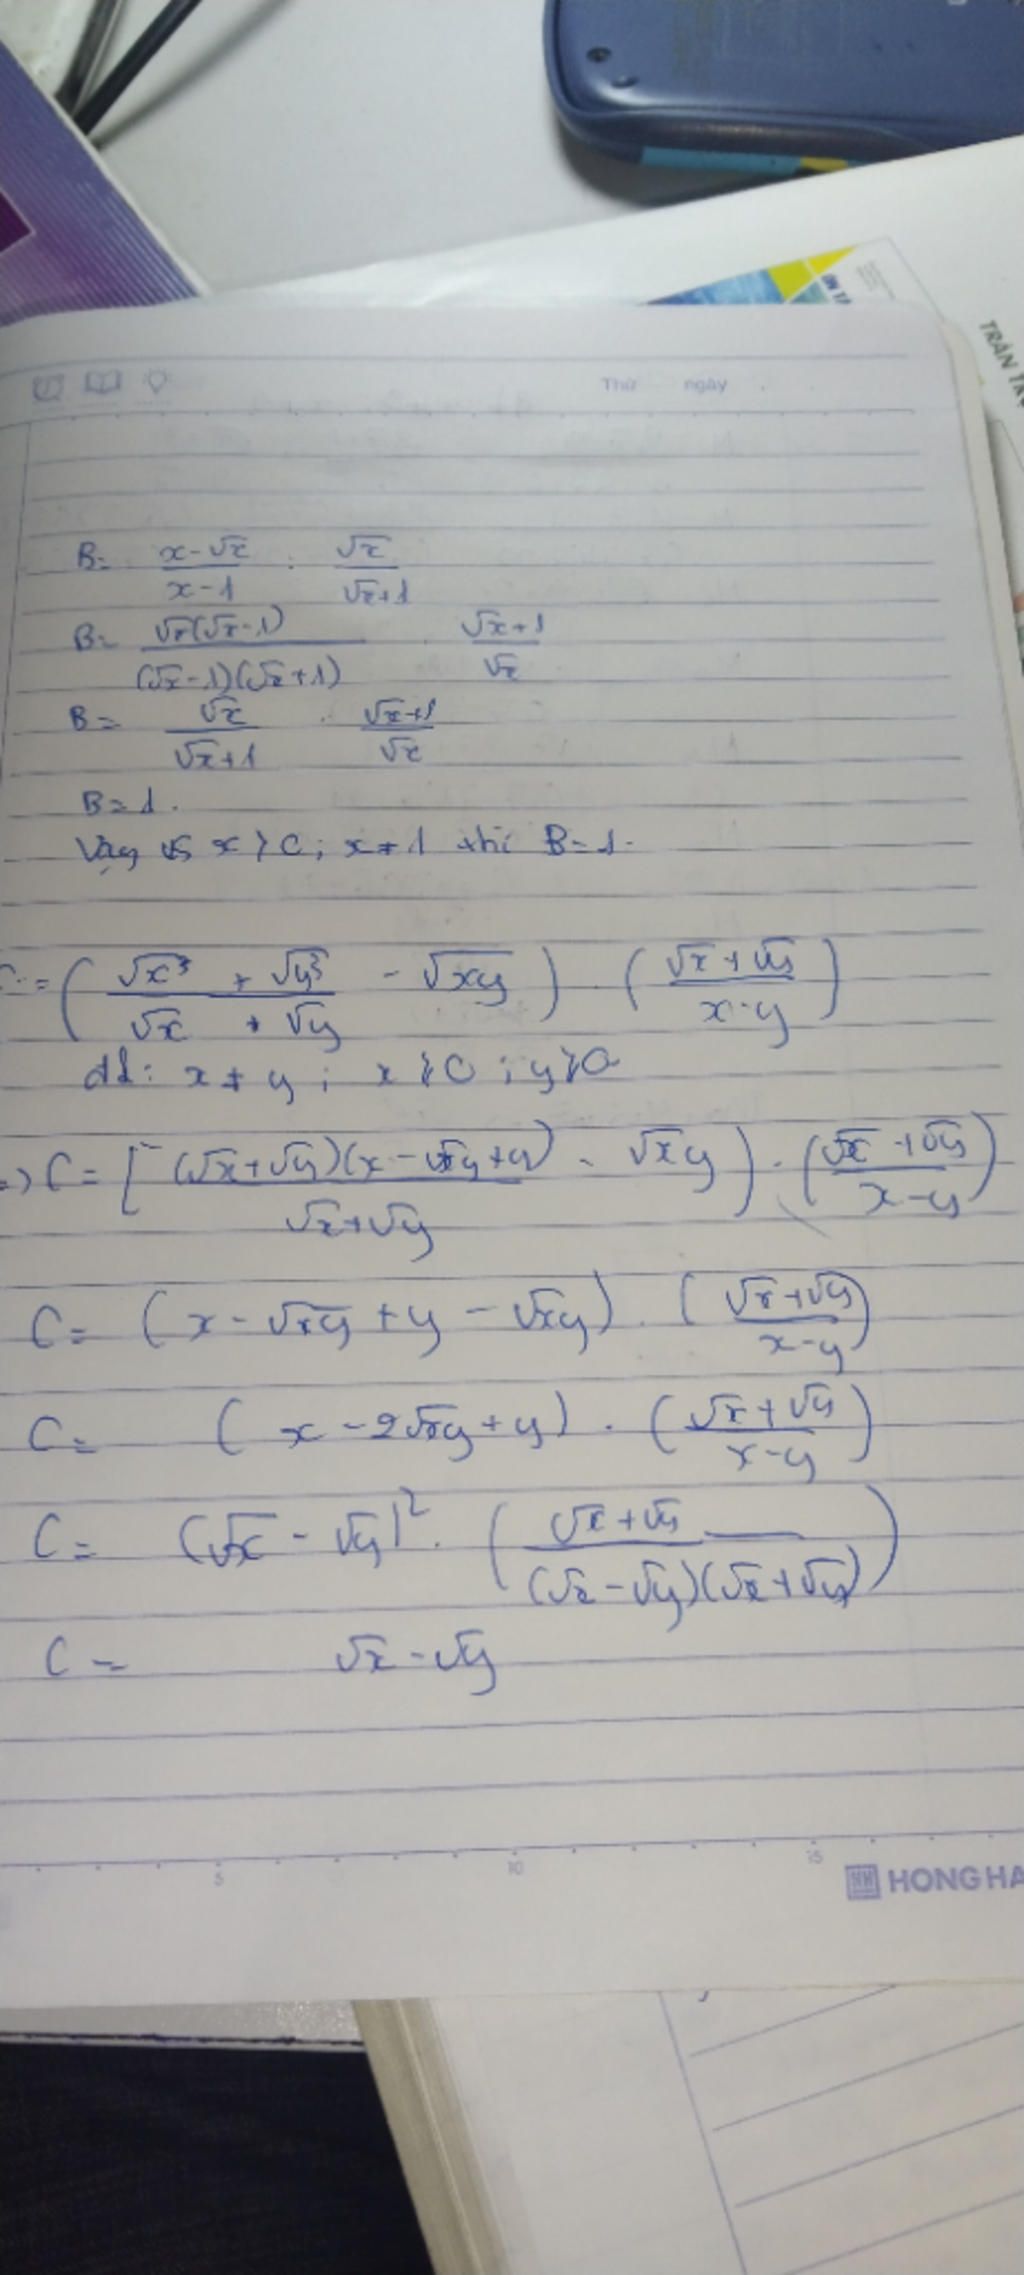 ÔN TẬ
TRẦN TRỌ
Thứ ngày
B= (x-√x)/(x-1) : √x/(√x+1)
B= √x(√x-1)/((√x-1)(√x+1)) . (√x+1)/√x
B= √x/(√x+1) . (√x+1)/√x
B=1.
Vậy với x>0; x≠1 thì B=1.
C=((√x³+√y³)/(√x+√y) - √xy) . ((√x+√y)/(x-y))
đk: x≠y; x≥0; y≥0
=> C=[(√x+√y)(x-√xy+y)/(√x+√y) - √xy) . ((√x+√y)/(x-y))
C= (x-√xy+y-√xy) . ((√x+√y)/(x-y))
C= (x-2√xy+y) . ((√x+√y)/(x-y))
C= (√x-√y)² . ((√x+√y)/((√x-√y)(√x+√y)))
C= √x-√y
5 10 15
HONG HA